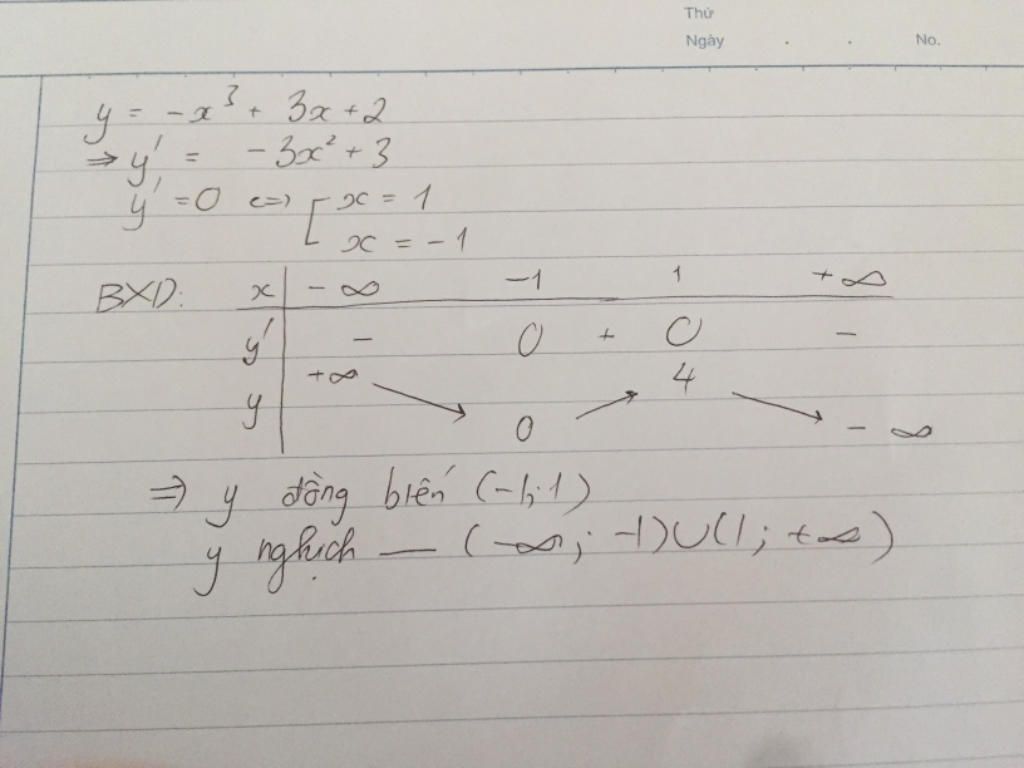 Thứ
Ngày . . No.
y = -x³ + 3x + 2
⇒ y' = -3x² + 3
y' = 0 ⇔ [ x = 1
x = -1
BXD: x | -∞ -1 1 +∞
y' | - 0 + 0 -
+∞ 4
y | ↘ 0 ↗ ↘ -∞
⇒ y đồng biến (-1; 1)
y nghịch — (-∞; -1)∪(1; +∞)